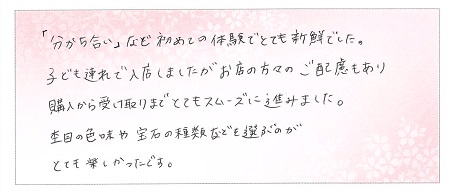 「分かち合い」など初めての体験でとても新鮮でした。
子ども連れで入店しましたがお店の方々のご配慮もあり
購入から受け取りまでとてもスムーズに進みました。
杢目の色味や宝石の種類などを選ぶのが
とても楽しかったです。